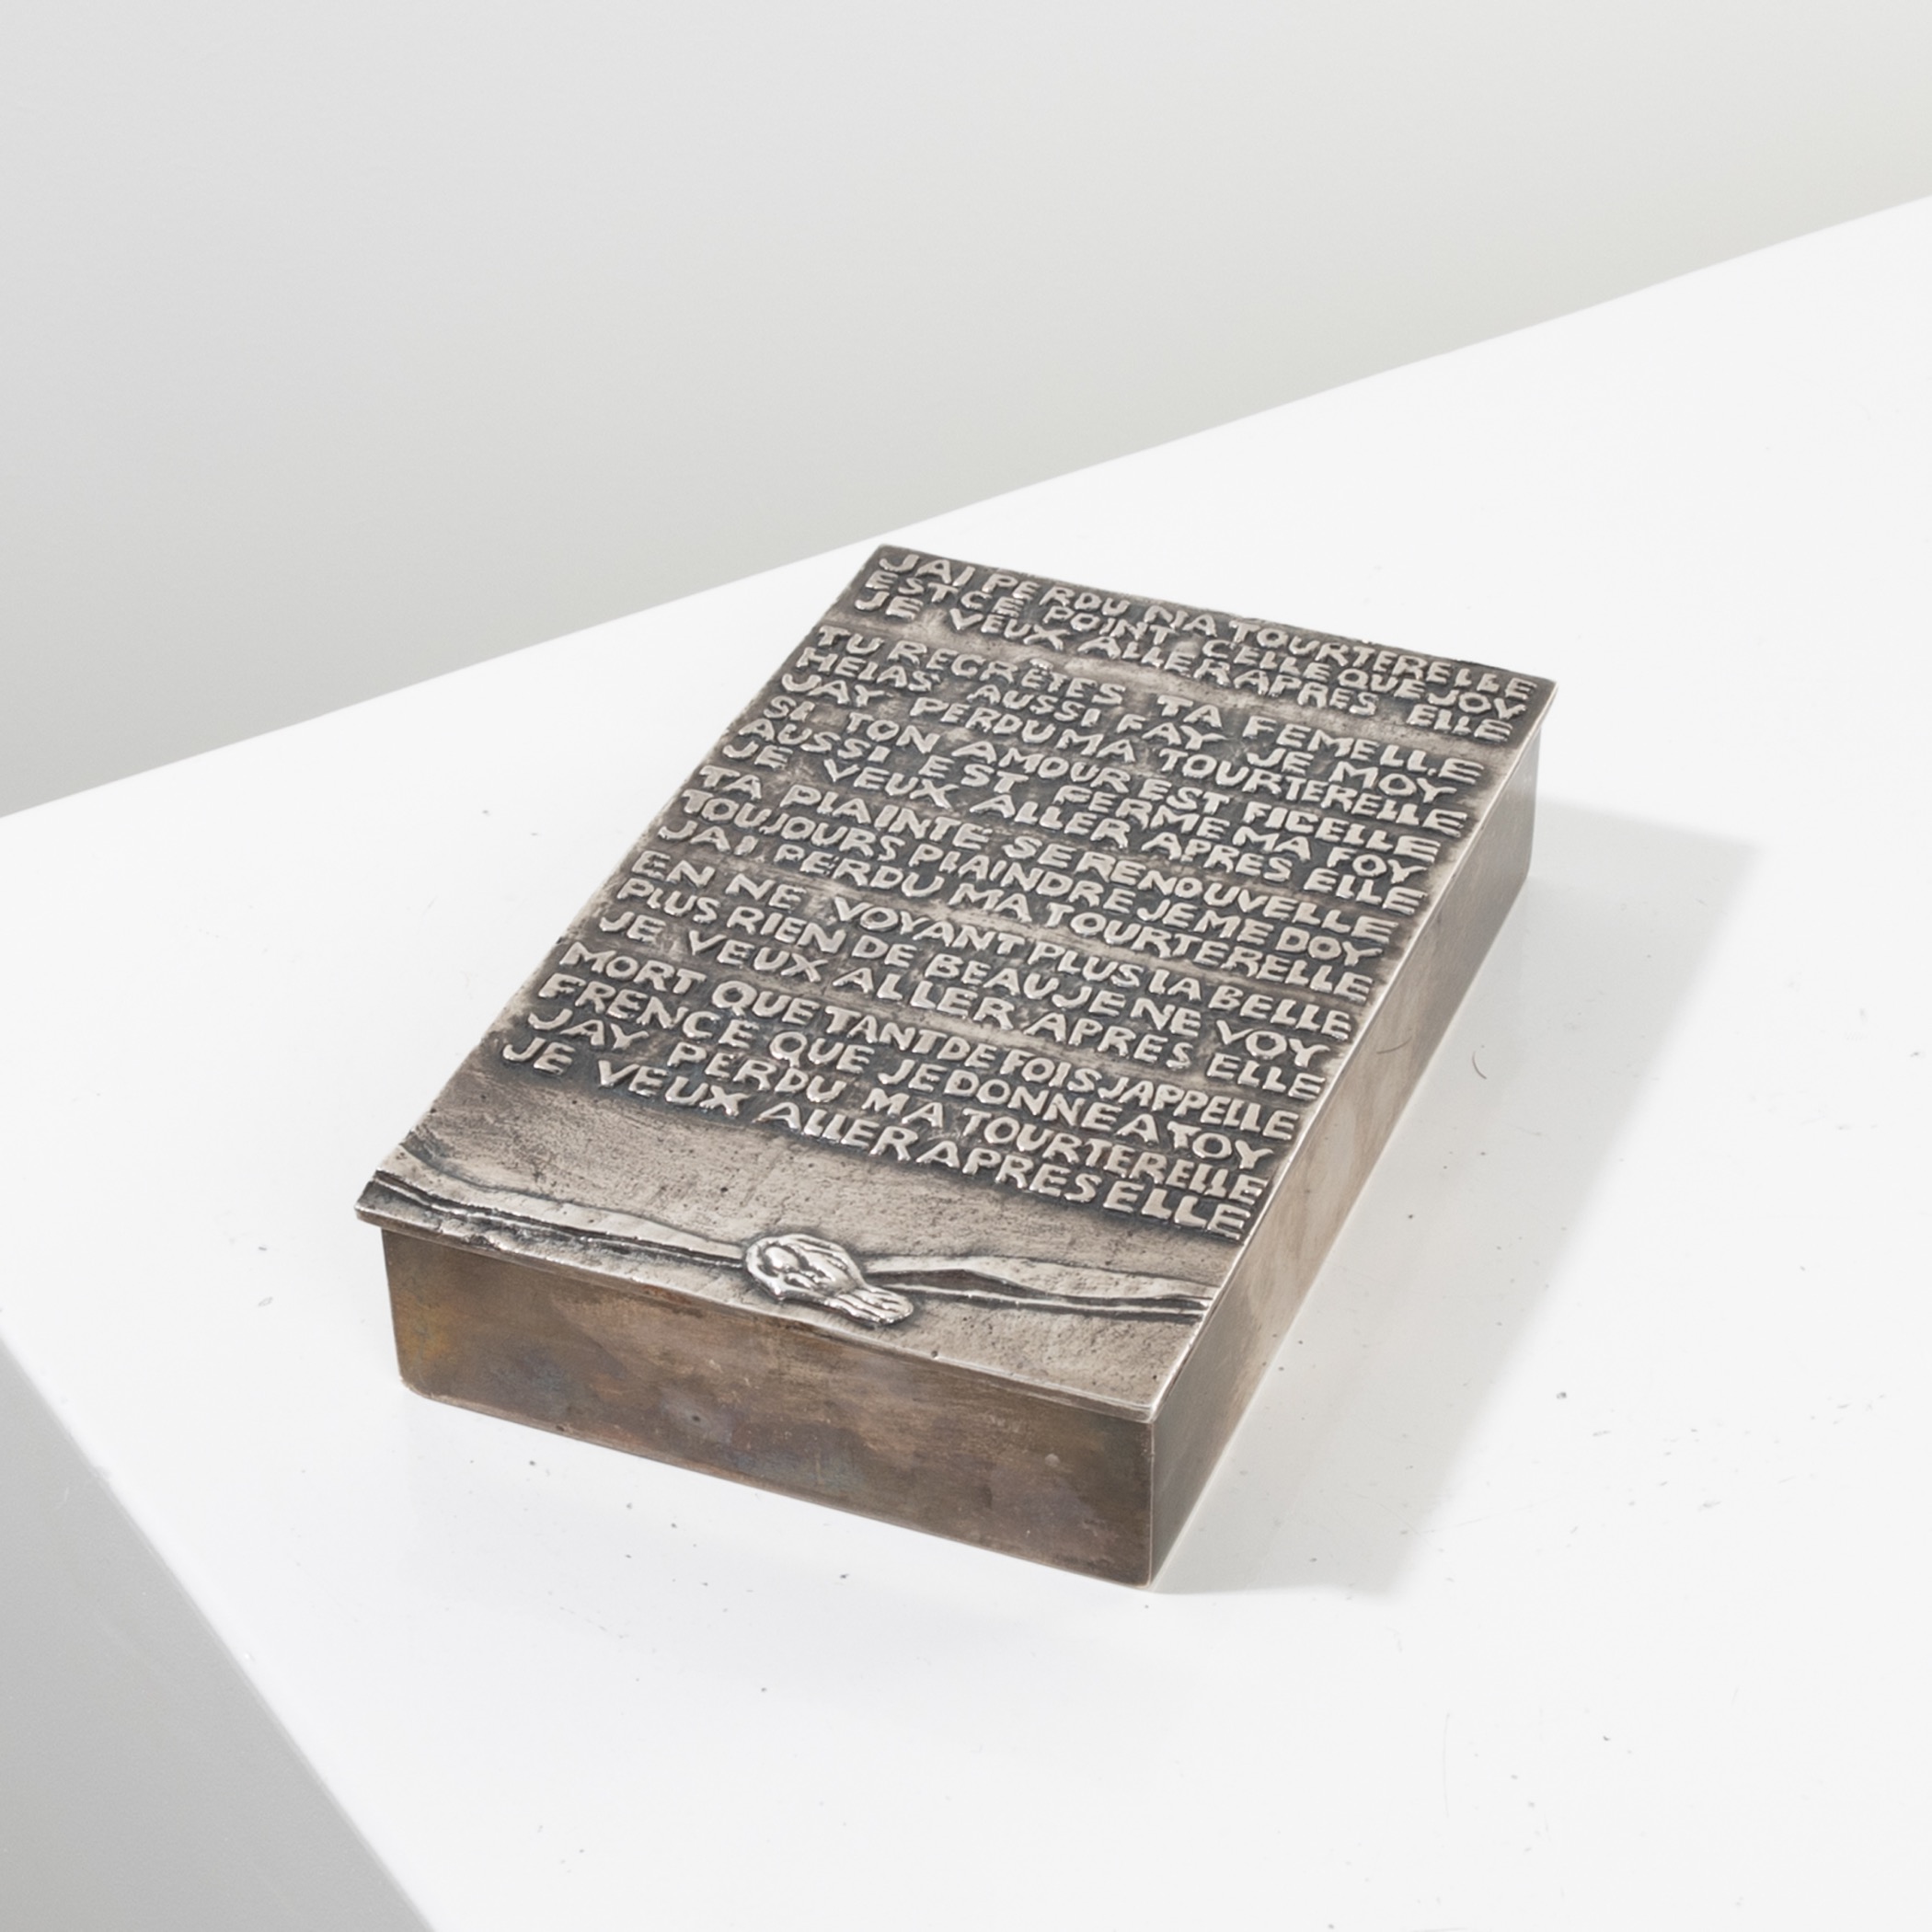 JAI PERDU MA TOURTERELLE
EST CE POINT CELLE QUE JOY
JE VEUX ALLER APRES ELLE
TU REGRETES TA FEMELLE
HELAS AUSSI FAY JE MOY
JAY PERDU MA TOURTERELLE
SI TON AMOUR EST FIDELLE
AUSSI EST FERME MA FOY
JE VEUX ALLER APRES ELLE
TA PLAINTE SE RENOUVELLE
TOUJOURS PLAINDRE JE ME DOY
JAI PERDU MA TOURTERELLE
EN NE VOYANT PLUS LA BELLE
PLUS RIEN DE BEAU JE NE VOY
JE VEUX ALLER APRES ELLE
MORT QUE TANT DE FOIS JAPPELLE
FRENCE QUE JE DONNE A TOY
JAY PERDU MA TOURTERELLE
JE VEUX ALLER APRES ELLE